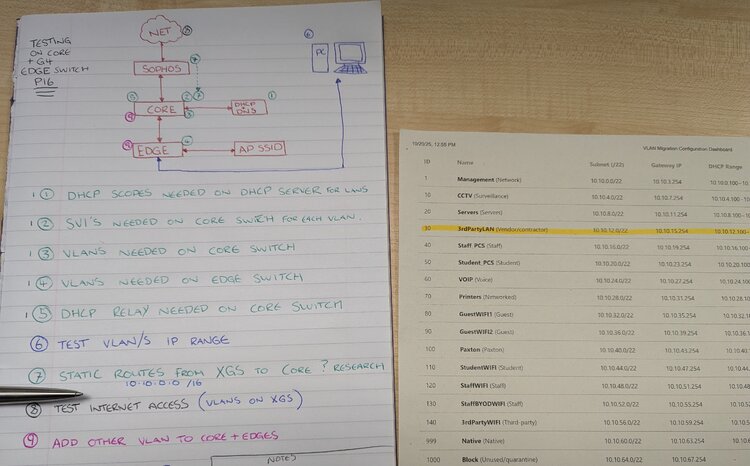 TESTING
ON CORE
+ G4
EDGE SWITCH
P16
NET
⑧
SOPHOS
⑦
⑥
PC
⑤
②
⑦
CORE
③
⑨
DHCP
+ DNS
①
⑨
④
EDGE
AP SSID
1 ① DHCP SCOPES NEEDED ON DHCP SERVER FOR VLANS
1 ② SVI'S NEEDED ON CORE SWITCH FOR EACH VLAN.
1 ③ VLANS NEEDED ON CORE SWITCH
1 ④ VLANS NEEDED ON EDGE SWITCH
1 ⑤ DHCP RELAY NEEDED ON CORE SWITCH
⑥ TEST VLAN/S IP RANGE
⑦ STATIC ROUTES FROM XGS TO CORE? RESEARCH
10.10.0.0 /16
⑧ TEST INTERNET ACCESS (VLANS ON XGS)
⑨ ADD OTHER VLAN TO CORE + EDGES
NOTES
10/20/25, 12:55 PM VLAN Migration Configuration Dashboard
ID Name Subnet (/22) Gateway IP DHCP Range
1 Management (Network) 10.10.0.0/22 10.10.3.254 10.10.0.100 - 10
10 CCTV (Surveillance) 10.10.4.0/22 10.10.7.254 10.10.4.100 - 10
20 Servers (Servers) 10.10.8.0/22 10.10.11.254 10.10.8.100 - 10
30 3rdPartyLAN (Vendor/contractor) 10.10.12.0/22 10.10.15.254 10.10.12.100 -
40 Staff_PCS (Staff) 10.10.16.0/22 10.10.19.254 10.10.16.100
50 Student_PCS (Student) 10.10.20.0/22 10.10.23.254 10.10.20.100
60 VOIP (Voice) 10.10.24.0/22 10.10.27.254 10.10.24.100
70 Printers (Networked) 10.10.28.0/22 10.10.31.254 10.10.28.10
80 GuestWIFI1 (Guest) 10.10.32.0/22 10.10.35.254 10.10.32.10
90 GuestWIFI2 (Guest) 10.10.36.0/22 10.10.39.254 10.10.36.1
100 Paxton (Paxton) 10.10.40.0/22 10.10.43.254 10.10.40.1
110 StudentWIFI (Student) 10.10.44.0/22 10.10.47.254 10.10.44.
120 StaffWIFI (Staff) 10.10.48.0/22 10.10.51.254 10.10.48.
130 StaffBYODWIFI (Staff) 10.10.52.0/22 10.10.55.254 10.10.52.
140 3rdPartyWIFI (Third-party) 10.10.56.0/22 10.10.59.254 10.10.56
999 Native (Native) 10.10.60.0/22 10.10.63.254 10.10.6
1000 Block (Unused/quarantine) 10.10.64.0/22 10.10.67.254